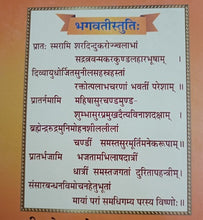 भगवतीस्तुतिः
प्रातः स्मरामि शरदिन्दुकरोज्ज्वलाभां
सद्रत्नवन्मकरकुण्डलहारभूषाम् ।
दिव्यायुधोर्जितसुनीलसहस्रहस्तां
रक्तोत्पलाभचरणां भवतीं परेशाम् ॥
प्रातर्नमामि महिषासुरचण्डमुण्ड-
शुम्भासुरप्रमुखदैत्यविनाशदक्षाम् ।
ब्रह्मेन्द्ररुद्रमुनिमोहनशीललीलां
चण्डीं समस्तसुरमूर्तिमनेकरूपाम् ॥
प्रातर्भजामि भजतामभिलाषदात्रीं
धात्रीं समस्तजगतां दुरितापहन्त्रीम् ।
संसारबन्धनविमोचनहेतुभूतां
मायां परां समधिगम्य परस्य विष्णोः ॥